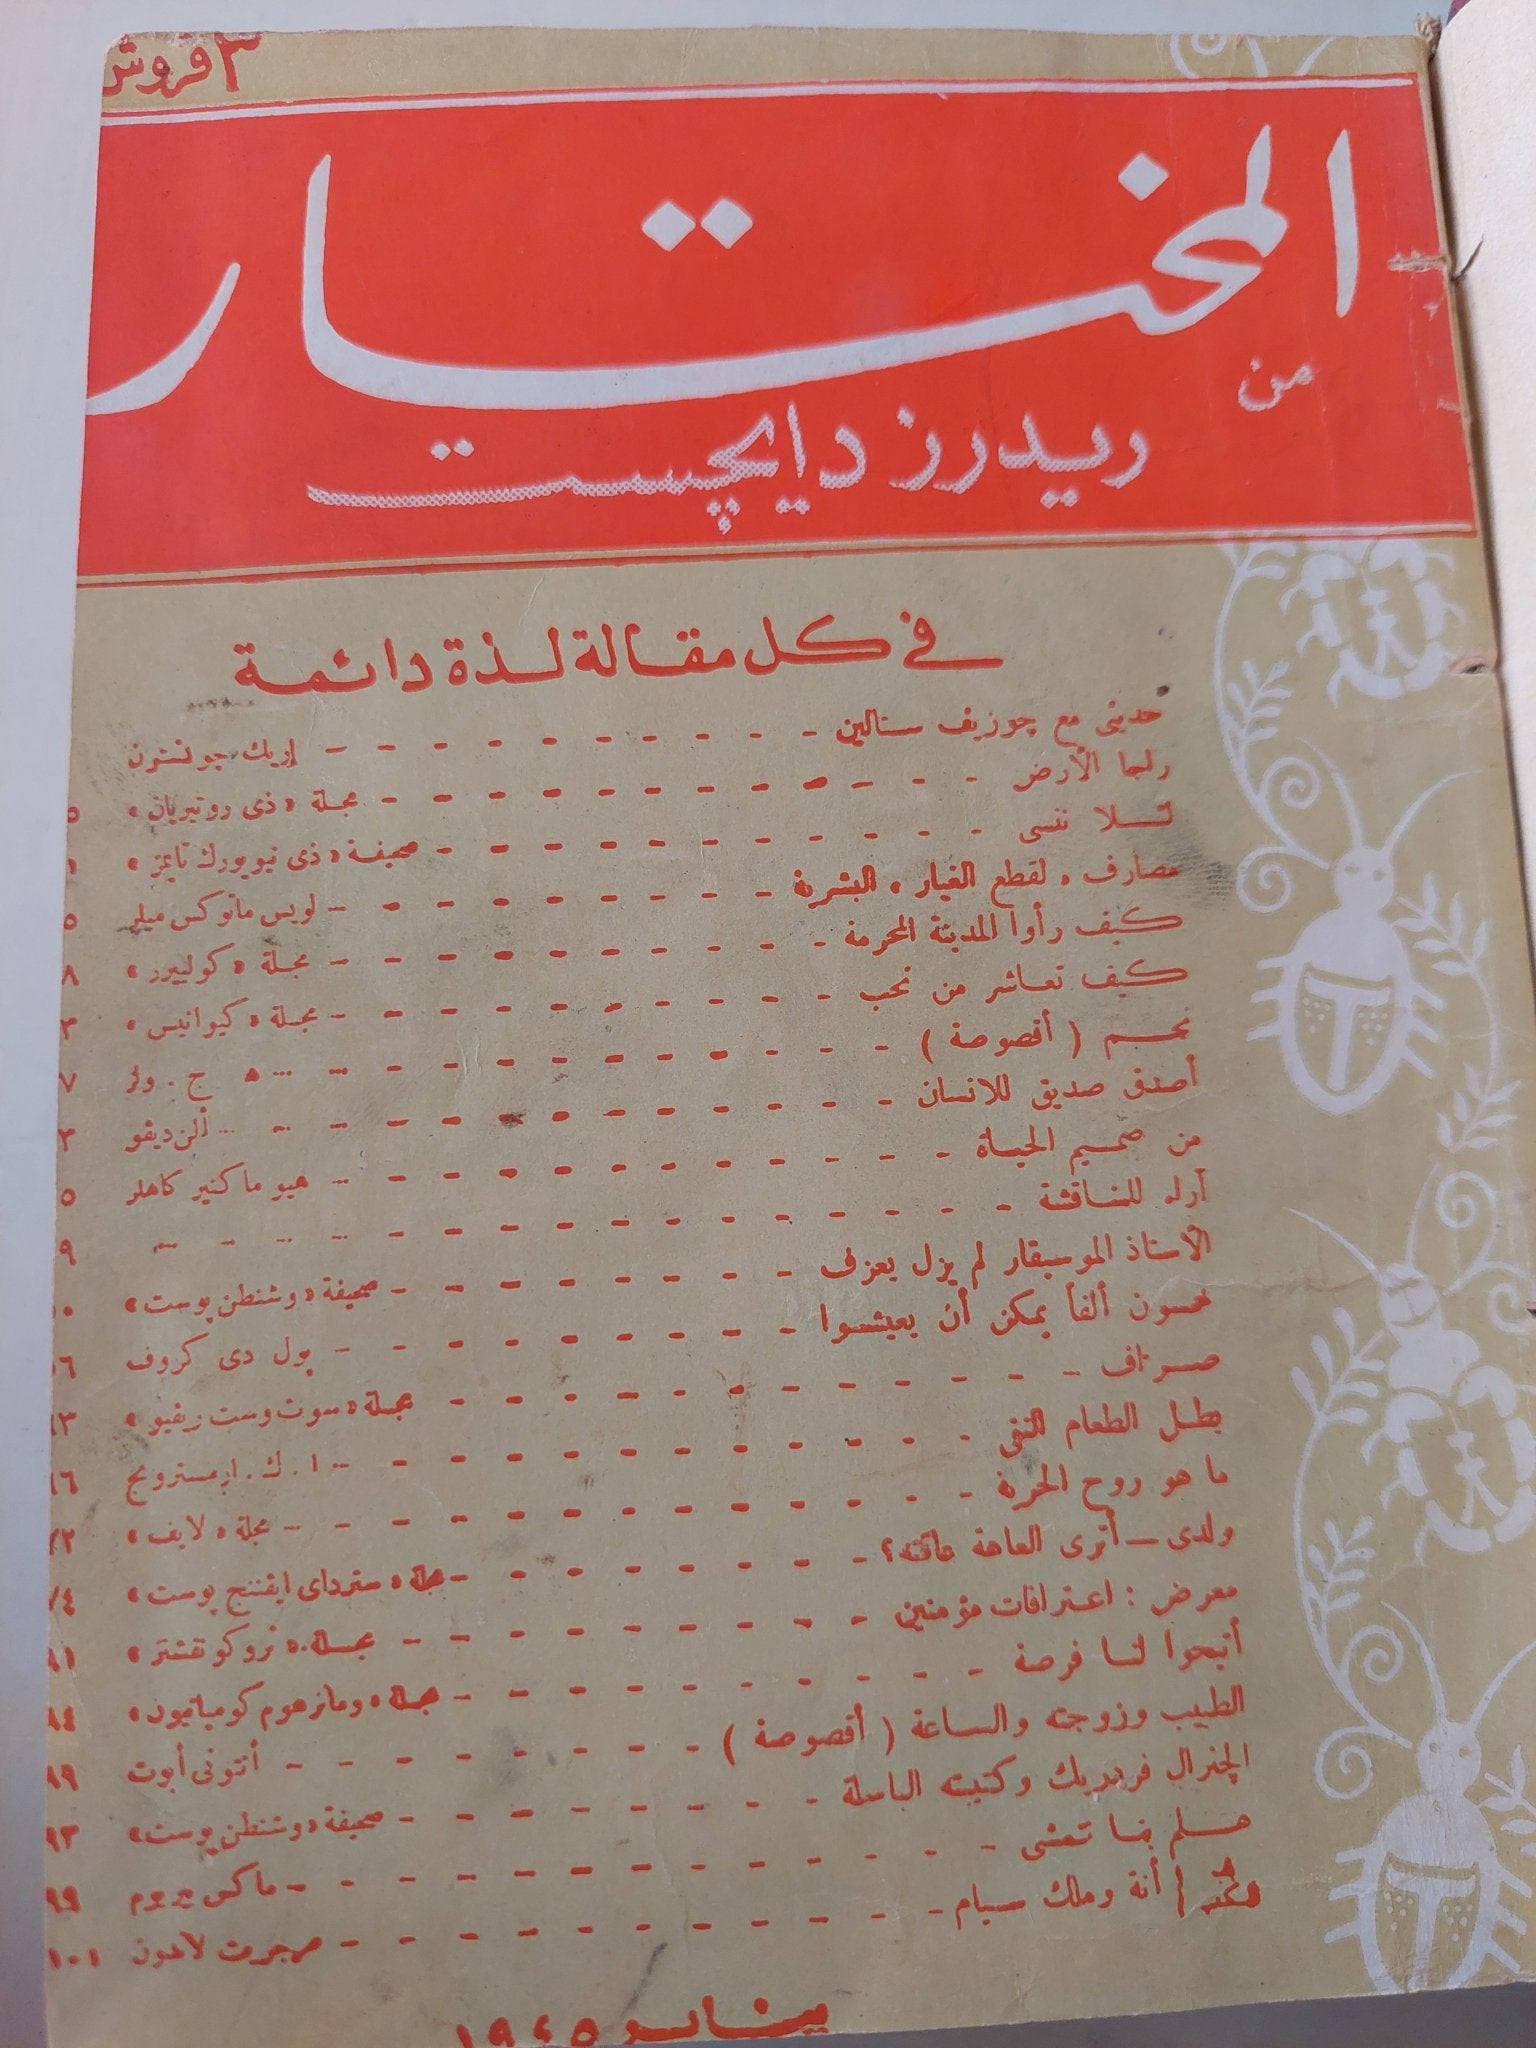 ٣ قروش
المختار
من
ريدرز دايچست
في كل مقالة لذة دائمة
حديثى مع چوزيف ستالين - إريك جونستون
رئيما الأرض - مجلة «ذى روتيريان» ٥
لئلا ننسى - صحيفة «ذى نيويورك تايمز» ١
مصارف «لقطع الغيار» البشرية - لويس ماتوكس ميلر ٥
كيف رأوا المدينة المحرمة - مجلة «كولييرز» ٨
كيف تعاشر من تحب - مجلة «كيوانيس» ٣
نحم (أقصوصة) - ه. ج. ولز ٧
أصدق صديق للانسان - ألن ديفو ٣
من صميم الحياة - هيو ماكنير كاهلر ٥
آراء للمناقشة - ٩
الأستاذ الموسيقار لم يزل يعزف - صحيفة «وشنطن پوست» ٠
خمسون ألفاً يمكن أن يعيشوا - پول دى كروف ٦
صراف - مجلة «سوث وست ريفيو» ٦٣
بطل الطعام النقى - ا. ك. ارمسترونج ٦٦
ما هو روح الحرية - مجلة «لايف» ٧٢
ولدى — أترى العاهة عاقته؟ - مجلة «سترداى ايفننج پوست» ٧٤
معرض : اعترافات مؤمنين - مجلة ٨١
أتيحوا لنا فرصة - مجلة «ومانز هوم كومپانيون» ٨٤
الطبيب وزوجته والساعة (أقصوصة) - أنتونى أبوت ٨٩
الچنرال فردريك وكتيبته الباسلة - صحيفة «وشنطن پوست» ٩٢
هلم بنا نمشى - ماكس بيربوم ٩٩
أنة وملك سيام - مرجريت لاندون ١٠١
يناير ١٩٤٥